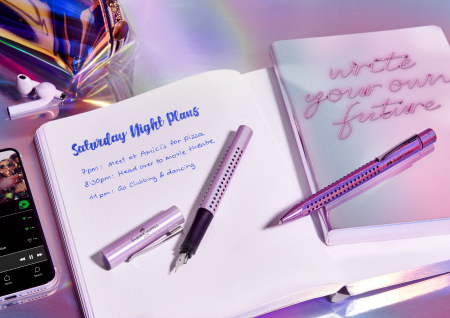 Saturday Night Plans
7pm: Meet at Amici's for pizza
8:30pm: Head over to movie theatre
11pm: Go clubbing & dancing
write
your own
future